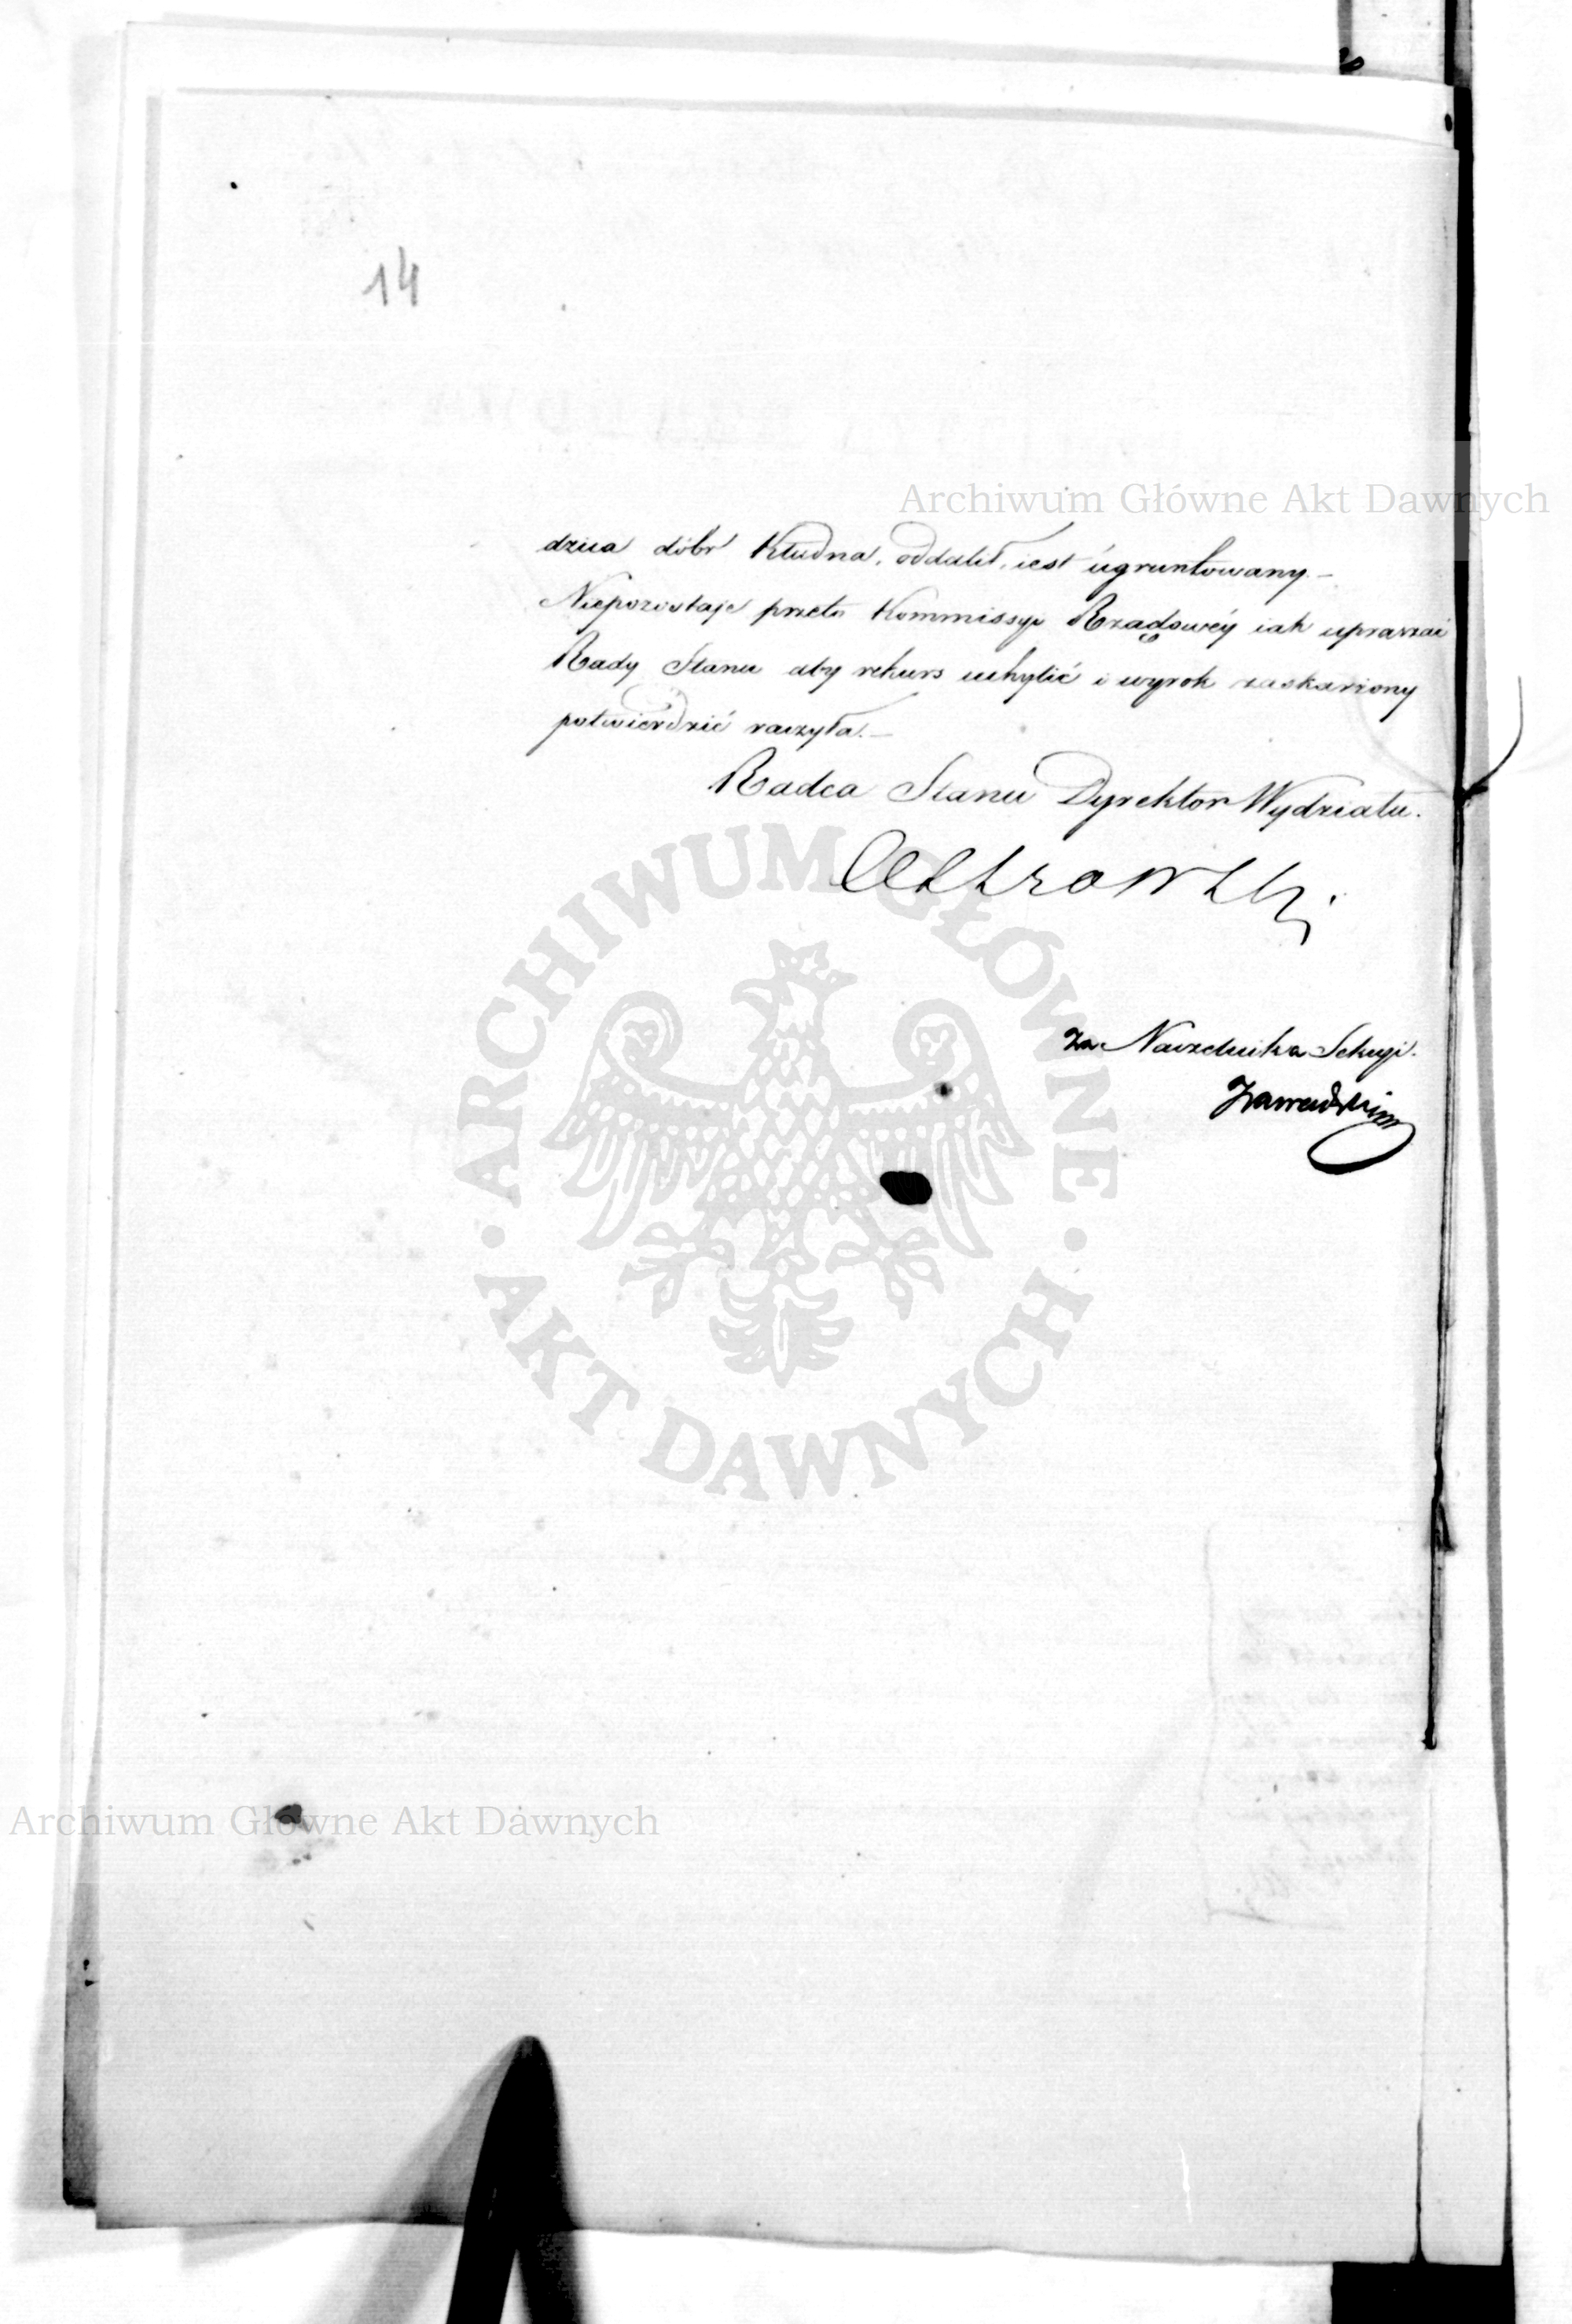 14
Archiwum Główne Akt Dawnych
dzica dóbr Kłudna, oddalił, iest ugruntowany.—
Niepozostaje przeto Kommissyi Rządowéy iak upraszać
Rady Stanu aby rekurs uchylić i wyrok zaskarżony
potwierdzić raczyła.—
Radca Stanu Dyrektor Wydziału.
za Naczelnika Sekcyi.
ARCHIWUM GŁÓWNE
AKT DAWNYCH
Archiwum Główne Akt Dawnych